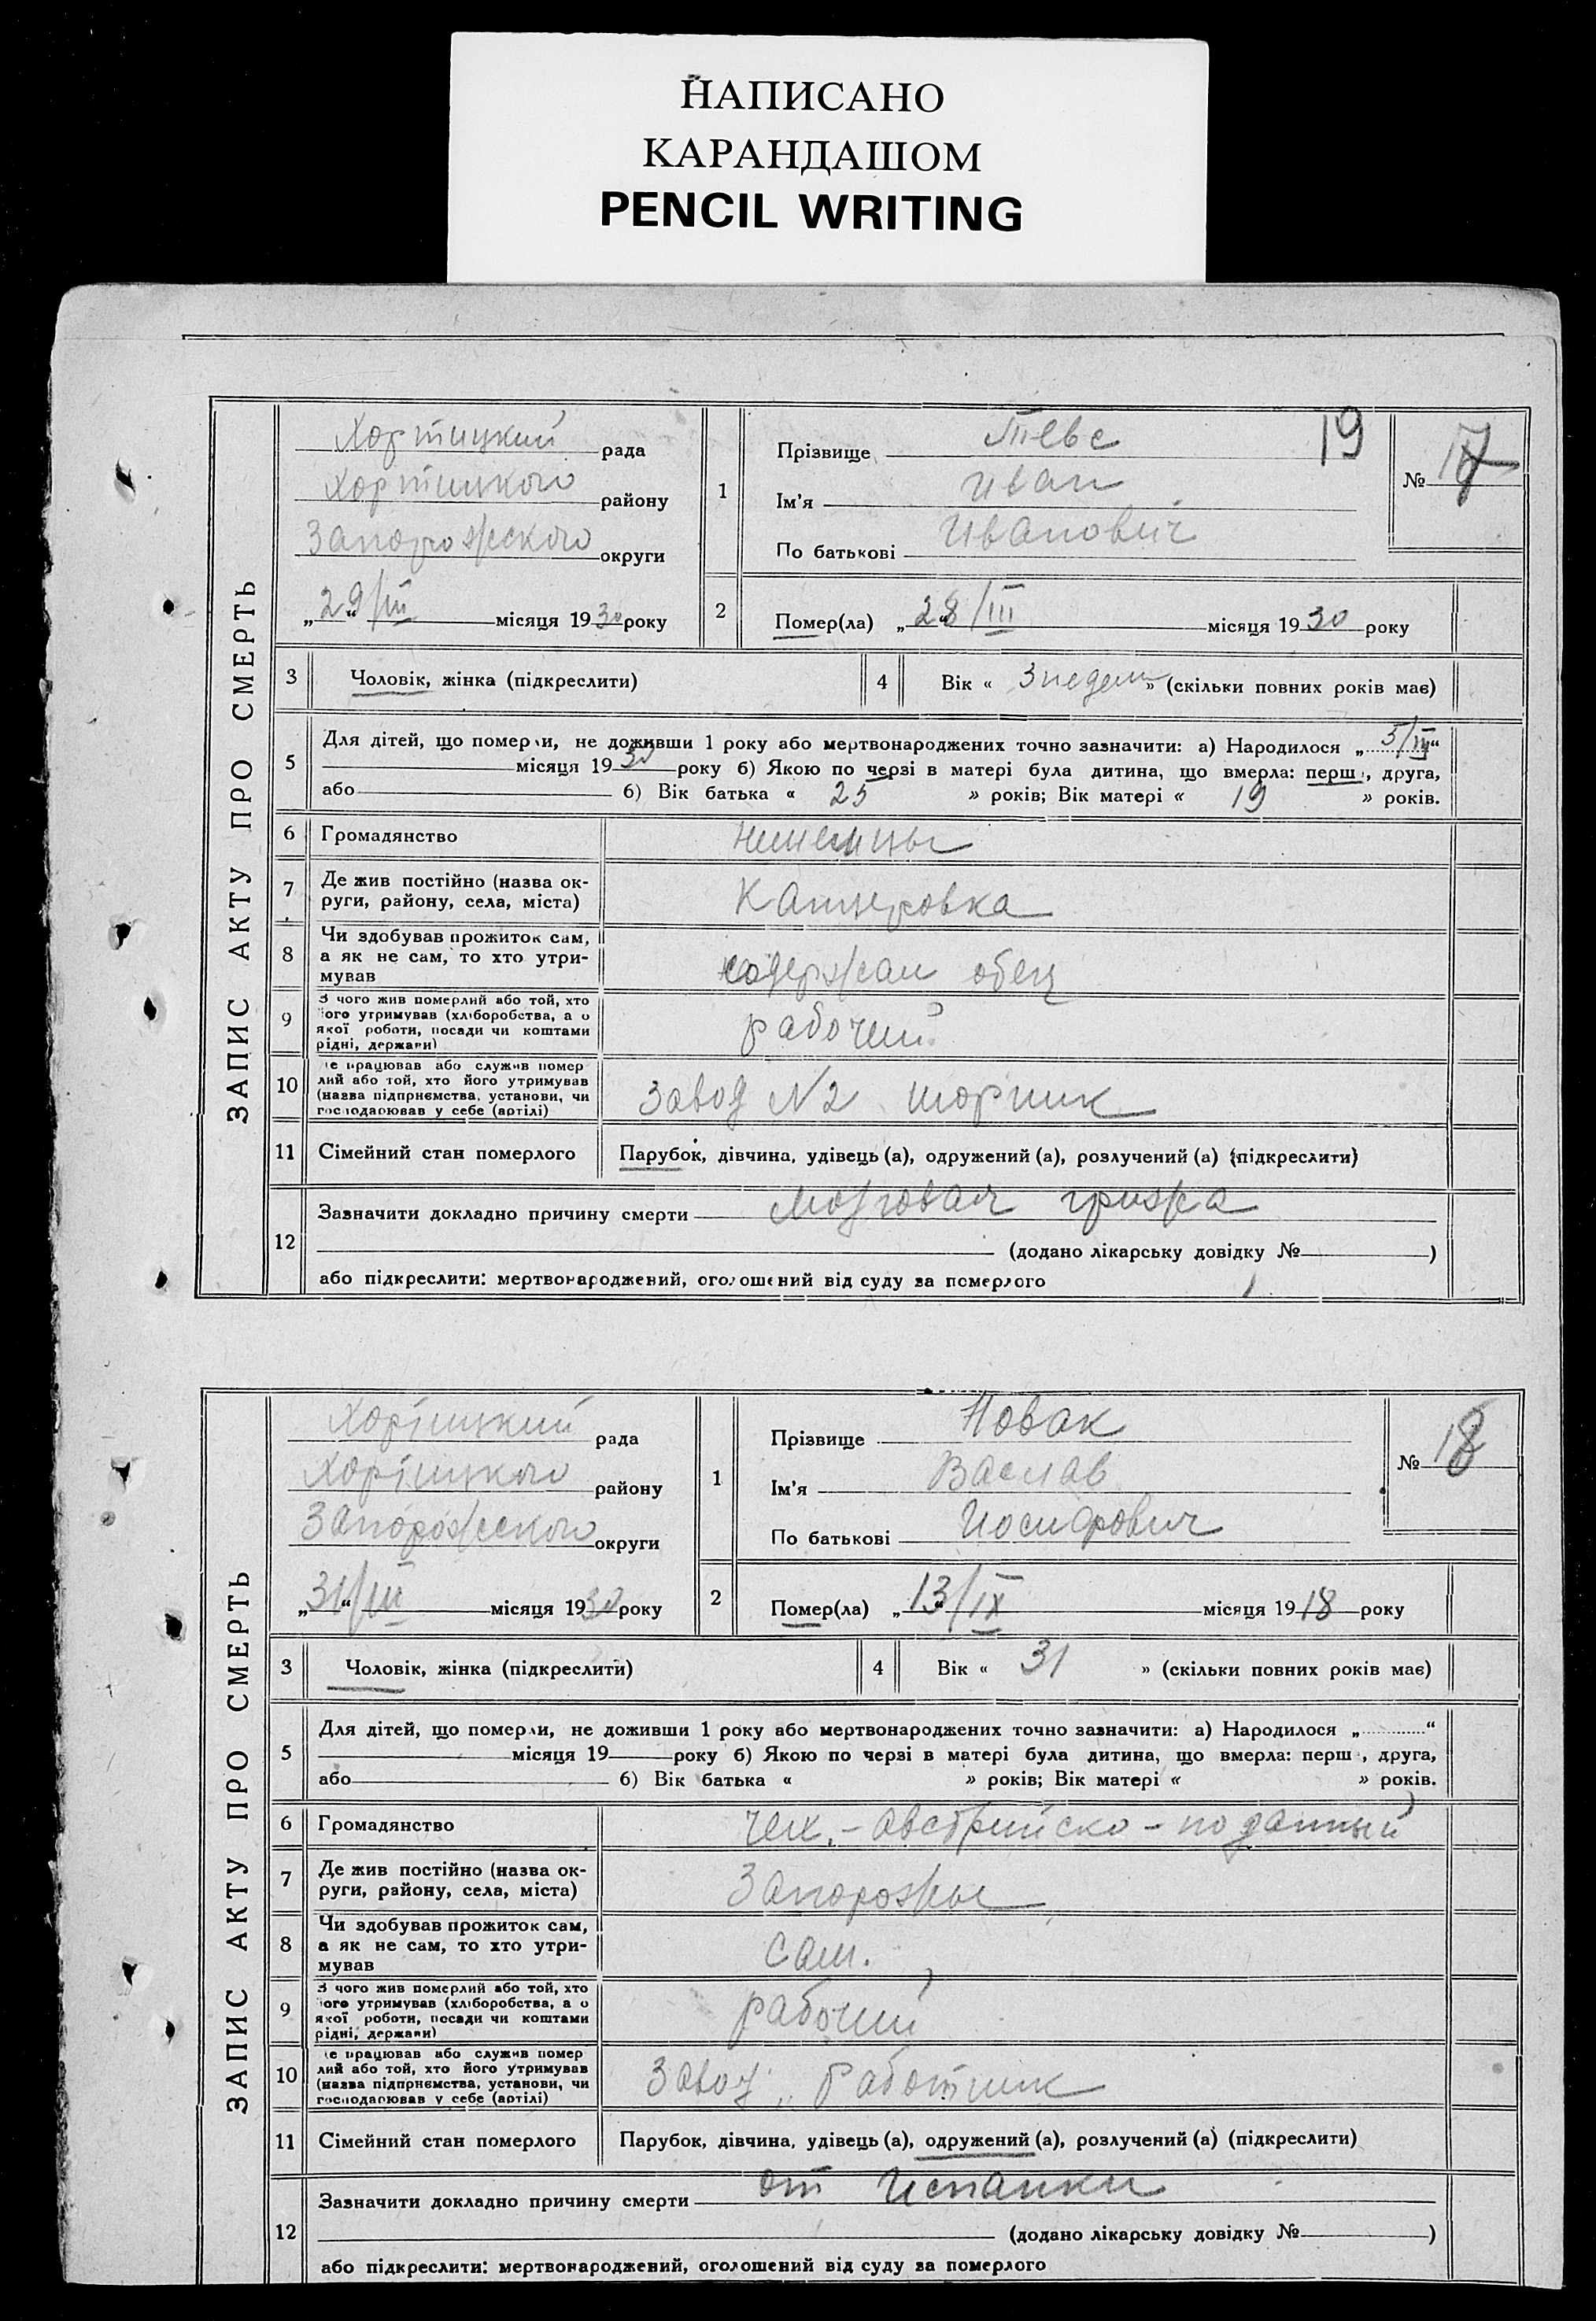 НАПИСАНО
КАРАНДАШОМ
PENCIL WRITING
ЗАПИС АКТУ ПРО СМЕРТЬ
Хортицкий рада
Хортицкого району
Запорожского округи
„29/III“ місяця 1930 року
1
Прізвище Тевс
19
Ім'я Иван
По батькові Иванович
№ 17
2
Помер(ла) „28/III місяця 1930 року
3 Чоловік, жінка (підкреслити)
4 Вік « 3 недели » (скільки повних років має)
5 Для дітей, що померли, не доживши 1 року або мертвонароджених точно зазначити: а) Народилося „5/III“
місяця 1930 року б) Якою по черзі в матері була дитина, що вмерла: перш, друга,
або б) Вік батька « 25 » років; Вік матері « 19 » років.
6 Громадянство немецы
7 Де жив постійно (назва ок-
руги, району, села, міста) Канцеровка
8 Чи здобував прожиток сам,
а як не сам, то хто утри-
мував содержал отец
9 З чого жив померлий або той, хто
його утримував (хліборобства, а о
якої роботи, посади чи коштами
рідні, держави) рабочий
10 де працював або служив помер
лий або той, хто його утримував
(назва підприємства, установи, чи
господарював у себе (артілі) Завод N2 шорник
11 Сімейний стан померлого Парубок, дівчина, удівець (а), одружений (а), розлучений (а) (підкреслити)
12 Зазначити докладно причину смерти Мозговая грижа
(додано лікарську довідку № )
або підкреслити: мертвонароджений, оголошений від суду за померлого
ЗАПИС АКТУ ПРО СМЕРТЬ
Хортицкий рада
Хортицкого району
Запорожского округи
„31/III“ місяця 1930 року
1
Прізвище Новак
Ім'я Васлав
По батькові Иосифович
№ 18
2
Помер(ла) „13/IX місяця 1918 року
3 Чоловік, жінка (підкреслити)
4 Вік « 31 » (скільки повних років має)
5 Для дітей, що померли, не доживши 1 року або мертвонароджених точно зазначити: а) Народилося „ “
місяця 19 року б) Якою по черзі в матері була дитина, що вмерла: перш, друга,
або б) Вік батька « » років; Вік матері « » років.
6 Громадянство Чех.-австрийско-поданный
7 Де жив постійно (назва ок-
руги, району, села, міста) Запорожье
8 Чи здобував прожиток сам,
а як не сам, то хто утри-
мував сам.
9 З чого жив померлий або той, хто
його утримував (хліборобства, а о
якої роботи, посади чи коштами
рідні, держави) рабочий
10 де працював або служив помер
лий або той, хто його утримував
(назва підприємства, установи, чи
господарював у себе (артілі) Завод, Работник
11 Сімейний стан померлого Парубок, дівчина, удівець (а), одружений (а), розлучений (а) (підкреслити)
12 Зазначити докладно причину смерти от Испанки
(додано лікарську довідку № )
або підкреслити: мертвонароджений, оголошений від суду за померлого